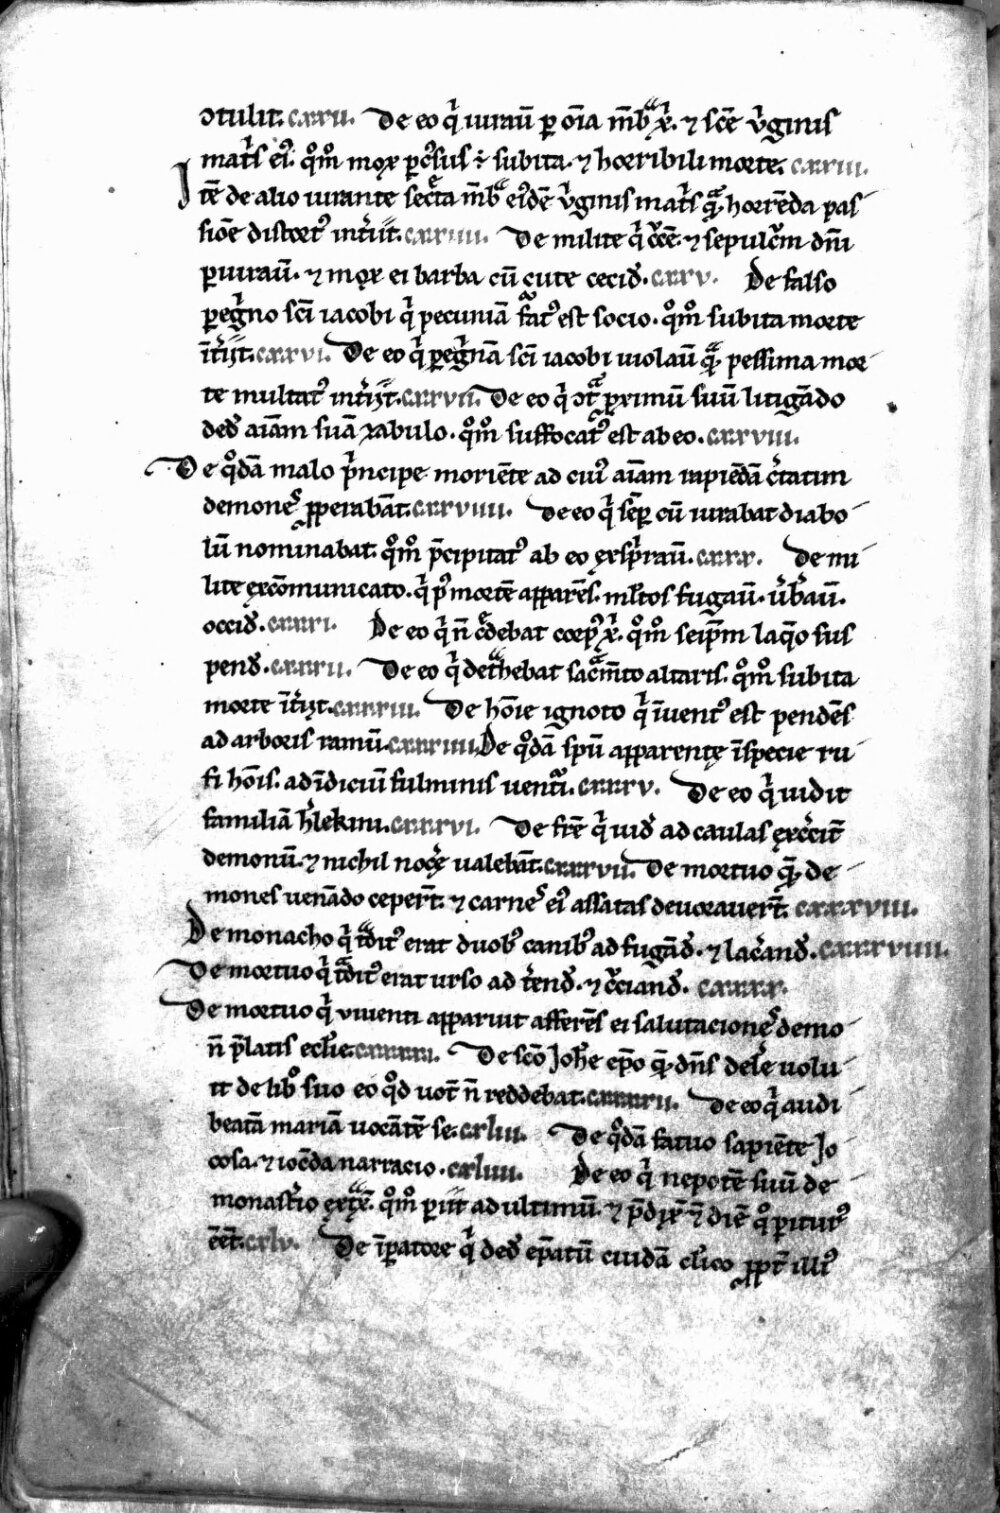 ɔtulit. cxxii. De eo q̍ iurau̅ p̲ oı̅a m̅bᵃ x̅p̍. ⁊ sc̅e v̍ginis
mat̍s eıꝰ. qᵒmᵒ mox p̲c̍sus ÷ subita ⁊ horribili morte. cxxiii.
Ite̅ de alio iurante sec̍ta m̅bᵃ eıꝰde̅ v̍ginis mat̍s qᵃ horre̅da pas
sio̅e distortꝰ int̍iit. cxxiiii. De milite q̍ c̍ce̅ ⁊ sepulc̍m dn̅i
p̲iurau̅. ⁊ mox ei barba cu̅ cute cecid̅. cxxv. De falso
p̲eg̍no sc̅i iacobi q̍ pecunia̅ furatꝰ est socio. qᵒmᵒ subita morte
ı̅t̍iit. cxxvi. De eo q̍ p̲eg̍na̅ sc̅i iacobi uiolau̅ qᵃ pessima mor
te multatꝰ int̍iit. cxxvii. De eo q̍ ɔt̍ᵃ p̲ximu̅ suu̅ litiga̅do
ded̅ aı̅am sua̅ zabulo. qᵒmᵒ suffocatꝰ est ab eo. cxxviii.
De qᵒda̅ malo p̍ncipe morie̅te ad cuıꝰ aı̅am rapie̅da̅ c̍tatim
demones p̲p̲eraba̅t. cxxviiii. De eo q̍ se̅p̲ cu̅ iurabat diabo
lu̅ nominabat. qᵒmᵒ p̅cipitatꝰ ab eo exspirau̅. cxxx. De mi
lite exco̅municato. q̍ pꝰ morte̅ appare̅s. ml̅tos fugau̅. v̍b̍au̅.
occid̅. cxxxi. De eo q̍ n̅ c̍debat corpꝰ x̅p̍. qᵒmᵒ seip̅m laq̅o sus
pend̅. cxxxii. De eo q̍ det̍hebat sac̍m̅to altaris. qᵒmᵒ subita
morte ı̅t̍iit. cxxxiii. De ho̅ie ignoto q̍ ı̅ventꝰ est pende̅s
ad arboris ramu̅. cxxxiiii. De qᵒda̅ spu̅ apparente ı̅specie ru
fi ho̅is. ad ı̅diciu̅ fulminis uent̍i. cxxxv. De eo q̍ uidit
familia̅ h̍lekini. cxxxvi. De fr̅e q̍ uid̅ ad caulas ex̍cit̅
demonu̅. ⁊ nichil noc̍e valeba̅t. cxxxvii. De mortuo qᵃ de
mones uena̅do ceper̅t. ⁊ carnes eıꝰ assatas deuorauer̅t. cxxxviii.
De monacho q̍ t̍ditꝰ erat duobꝰ canibꝰ ad fuga̅d̅. ⁊ lac̍and̅. cxxxviiii.
De mortuo q̍ t̍ditꝰ erat urso ad t̍end̅. ⁊ c̍ciand̅. cxxxx.
De mortuo q̍ viventi apparuit affere̅s ei salutaciones demo
n̅ p̍latis eccl̅ie. cxxxxi. De sc̅o Joh̅e ep̅o qᵃ dn̅s dele̍ uolu
it de lib̍o suo eo qᵒd uot̅ n̅ reddebat. cxxxxii. De eo q̍ audi
beata̅ maria̅ uoca̅te̅ se. cxliii. De qᵒda̅ fatuo sapie̅te Jo
cosa ⁊ ioc̅da narracio. cxliiii. De eo q̍ nepote̅ suu̅ de
monast̍io ext̍xe̅. qᵒmᵒ p̲iit ad ultimu̅. ⁊ p̅dix̅ ei̅ die̅ qᵒ p̲iturꝰ
e̅et. cxlv. De ı̅p̲atore q̍ ded̅ ep̅atu̅ cuida̅ cl̍ico p̲p̲t̅ illıꝰ